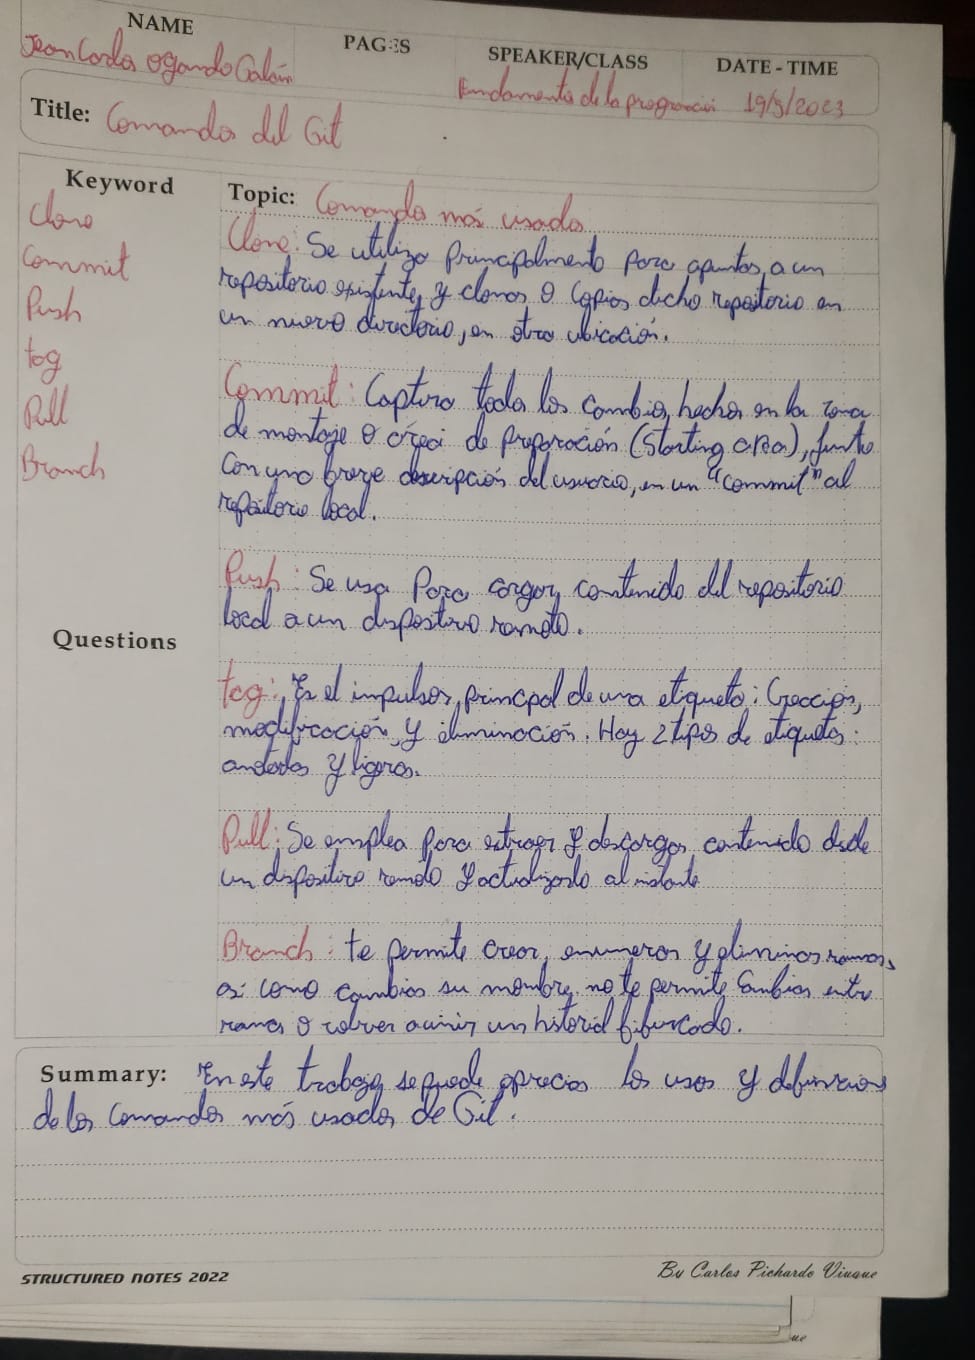 NAME
PAGES
SPEAKER/CLASS
DATE - TIME
Jean Carlos Ogando Galán
Fundamentos de la programación 19/5/2023
Title: Comandos del Git
Keyword
Topic: Comandos más usados
Clone
Commit
Push
tag
Pull
Branch
Questions
Clone: Se utiliza Principalmente para apuntar a un
repositorio existente, y clonar o copiar dicho repositorio en
un nuevo directorio, en otra ubicación.
Commit: Captura todos los cambios hechos en la zona
de montaje o área de preparación (Starting area), junto
con una breve descripción del usuario, en un "commit" al
repositorio local.
Push: Se usa Para cargar contenido del repositorio
local a un dispositivo remoto.
tag: Es el impulsor principal de una etiqueta: Creación,
modificación y eliminación. Hay 2 tipos de etiquetas:
anotadas y ligeras.
Pull: Se emplea para extraer y descargar contenido desde
un dispositivo remoto y actualizarlo al instante
Branch: te permite crear, enumerar y eliminar ramas,
así como cambiar su nombre, no te permite cambiar entre
ramas o volver a unir un historial bifurcado.
Summary: En este trabajo se puede apreciar los usos y definiciones
de los Comandos más usados de Git.
STRUCTURED NOTES 2022
By Carlos Pichardo Viuque
ue